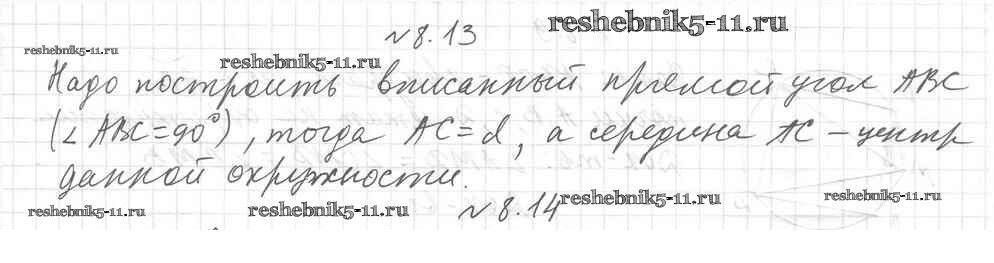 reshebnik5-11.ru
№ 8.13
reshebnik5-11.ru
reshebnik5-11.ru
Надо построить вписанный прямой угол ABC
(∠ABC=90°), тогда AC=d, а середина AC – центр
данной окружности.
reshebnik5-11.ru
reshebnik5-11.ru
№ 8.14
reshebnik5-11.ru
reshebnik5-11.ru